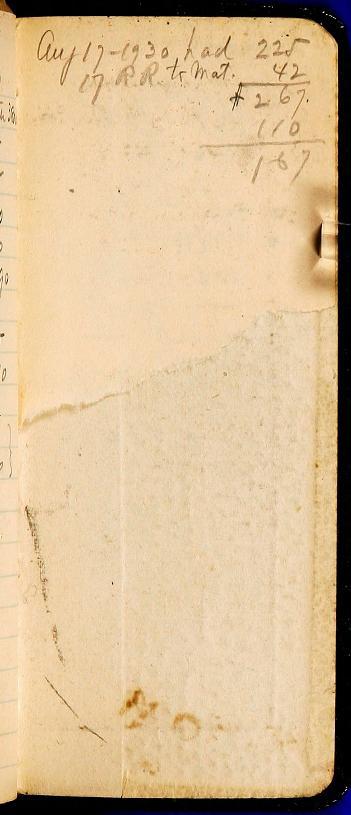 Aug 17-1930 had 225
17 R.R. to Mat. 42
267.
110
167